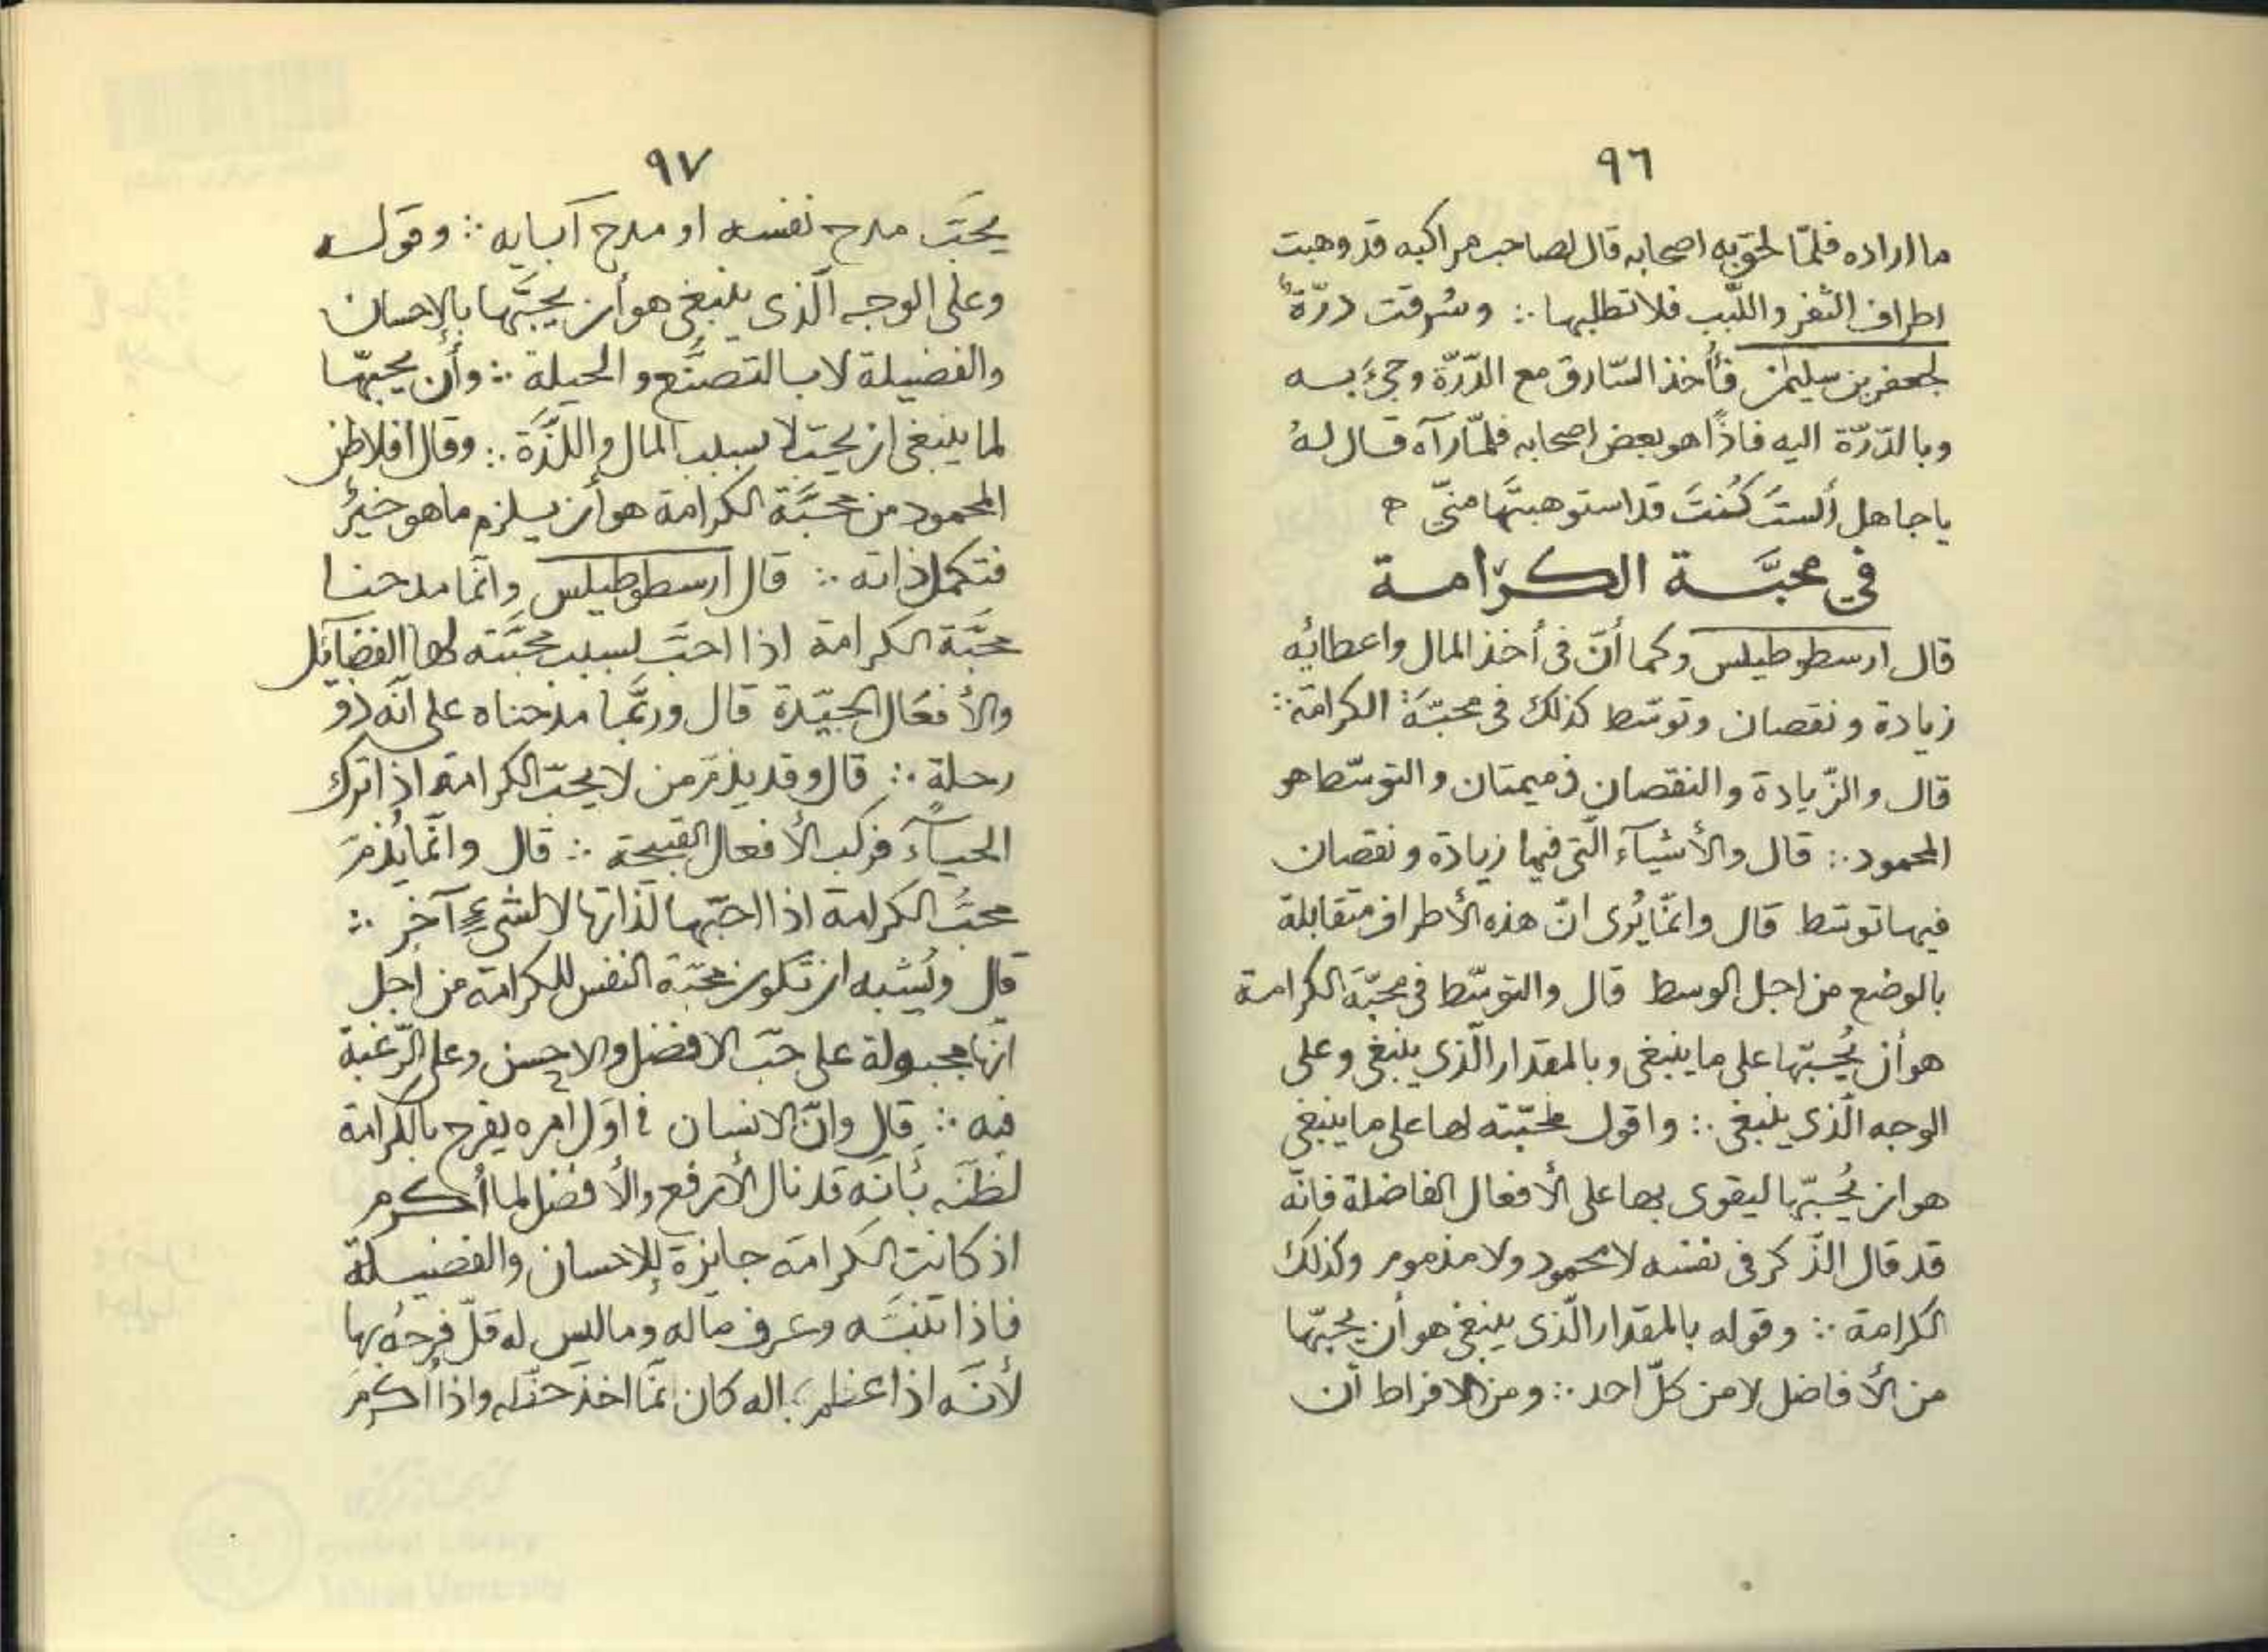 ٩٦
ما اراده فلمّا لحق به اصحابه قال لصاحب مراكبه قد وهبت
اطراف الثفر واللّبب فلا تطلبها ∴ وسُرقت درّةٌ
لجعفر بن سليمٰن فأُخذ السّارق مع الدّرّة وجىءَ به
وبالدّرّة اليه فاذًا هو بعض اصحابه فلمّا رآه قال لهُ
ياجاهل ألستَ كُنتَ قد استوهبتَها منّي ه
في محبَّة الكرامة
قال ارسطوطيلس وكما أنّ فى أخذ المال واعطائِه
زيادة ونقصان وتوسّط كذلك فى محبّة الكرامة ∴
قال والزّيادة والنقصان ذميمتان والتوسّط هو
المحمود ∴ قال والأشيآء الّتى فيها زيادة ونقصان
فيها توسّط قال وانّما يُرى انّ هذه الأطراف متقابلة
بالوضع من اجل الوسط قال والتوسّط فى محبّة الكرامة
هو أن يُحبّها على ما ينبغى وبالمقدار الّذى ينبغى وعلى
الوجه الّذى ينبغى ∴ واقول محبّته لها على ما ينبغى
هو ان يُحبّها ليقوى بها على الأفعال الفاضلة فانّه
قد قال الذّكر فى نفسه لا محمود ولا مذموم وكذلك
الكرامة ∴ وقوله بالمقدار الّذى ينبغى هو أن يحبّها
من الأفاضل لا من كلّ احد ∴ ومن الافراط أن
٩٧
يحبَّ مدح نفسه او مدح آبايه ∴ وقوله
وعلى الوجه الّذى ينبغى هو أن يحبَّها بالإحسان
والفضيلة لا بالتصنَّع والحيلة ∴ وأن يحبّها
لما ينبغى ان يحبّ لا بسبب المال واللّذَّة ∴ وقال افلاطن
المحمود من محبَّة الكرامة هو أن يلزم ما هو خيرٌ
فتكمل ذاته ∴ قال ارسطوطيلس وانّما مدحنا
محبَّة الكرامة اذا احبَّ بسبب محبَّته لها الفضايل
والأفعَال الجيّدة قال وربَّما مدحناه على انّه ذو
رحلة ∴ قال وقد يذمّ من لا يحبّ الكرامة اذا ترك
الحيآءَ فركب الأفعال القبيحة ∴ قال وانّما يُذمّ
محبُّ الكرامة اذا احبّها لذاتها لا لشىءٍ آخر ∴
قال ويُشبه ان تكون محبّة النفس للكرامة من اجل
انّها مجبولة على حبّ الافضل والاحسن وعلى الرّغبة
فيه ∴ قال وانّ الانسان فى اوّل امره يفرح بالكرامة
لظنّه بأنّه قد نال الأرفع والأفضل لما أُكرم
اذ كانت الكرامة جايزة للإحسان والفضيلة
فاذا تنبّه وعرف ماله وما ليس له قلّ فرحُه بها
لأنّه اذا عظم بماله كان انّما اخذ حقّه واذا أُكرمَ